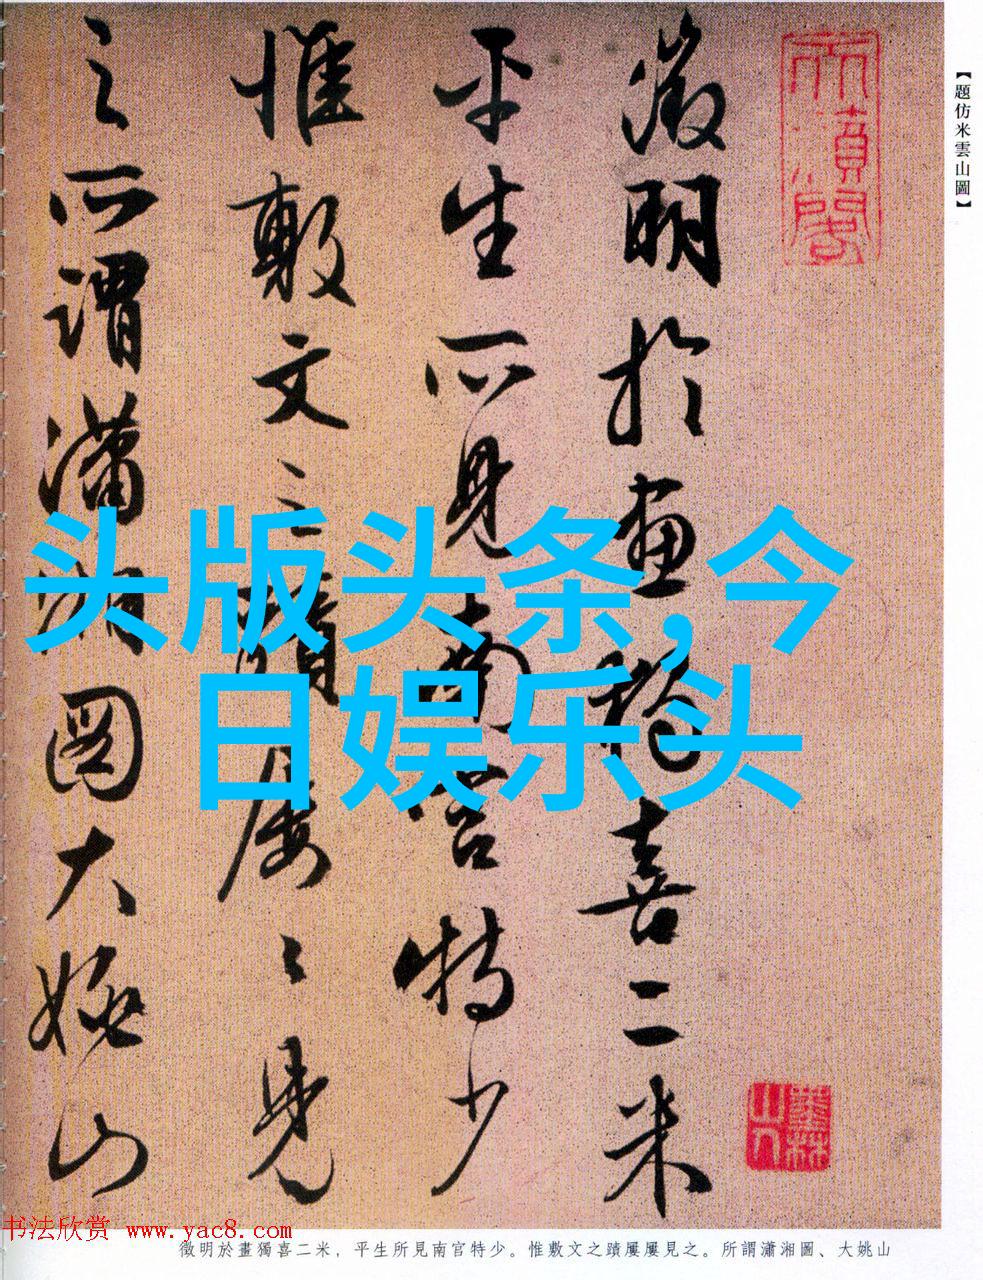 【題仿米雲山圖】
徵明於畫獨喜二米
平生所見南宫特少
惟敷文之蹟屢〻見
之所謂瀟湘圖大姚山
头版头条,今
日娱乐头
书法欣赏 www.yac8.com
徵明於畫獨喜二米，平生所見南官特少。惟敷文之蹟屢屢見之。所謂瀟湘圖、大姚山